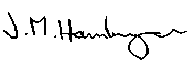 J.M. Hamburger